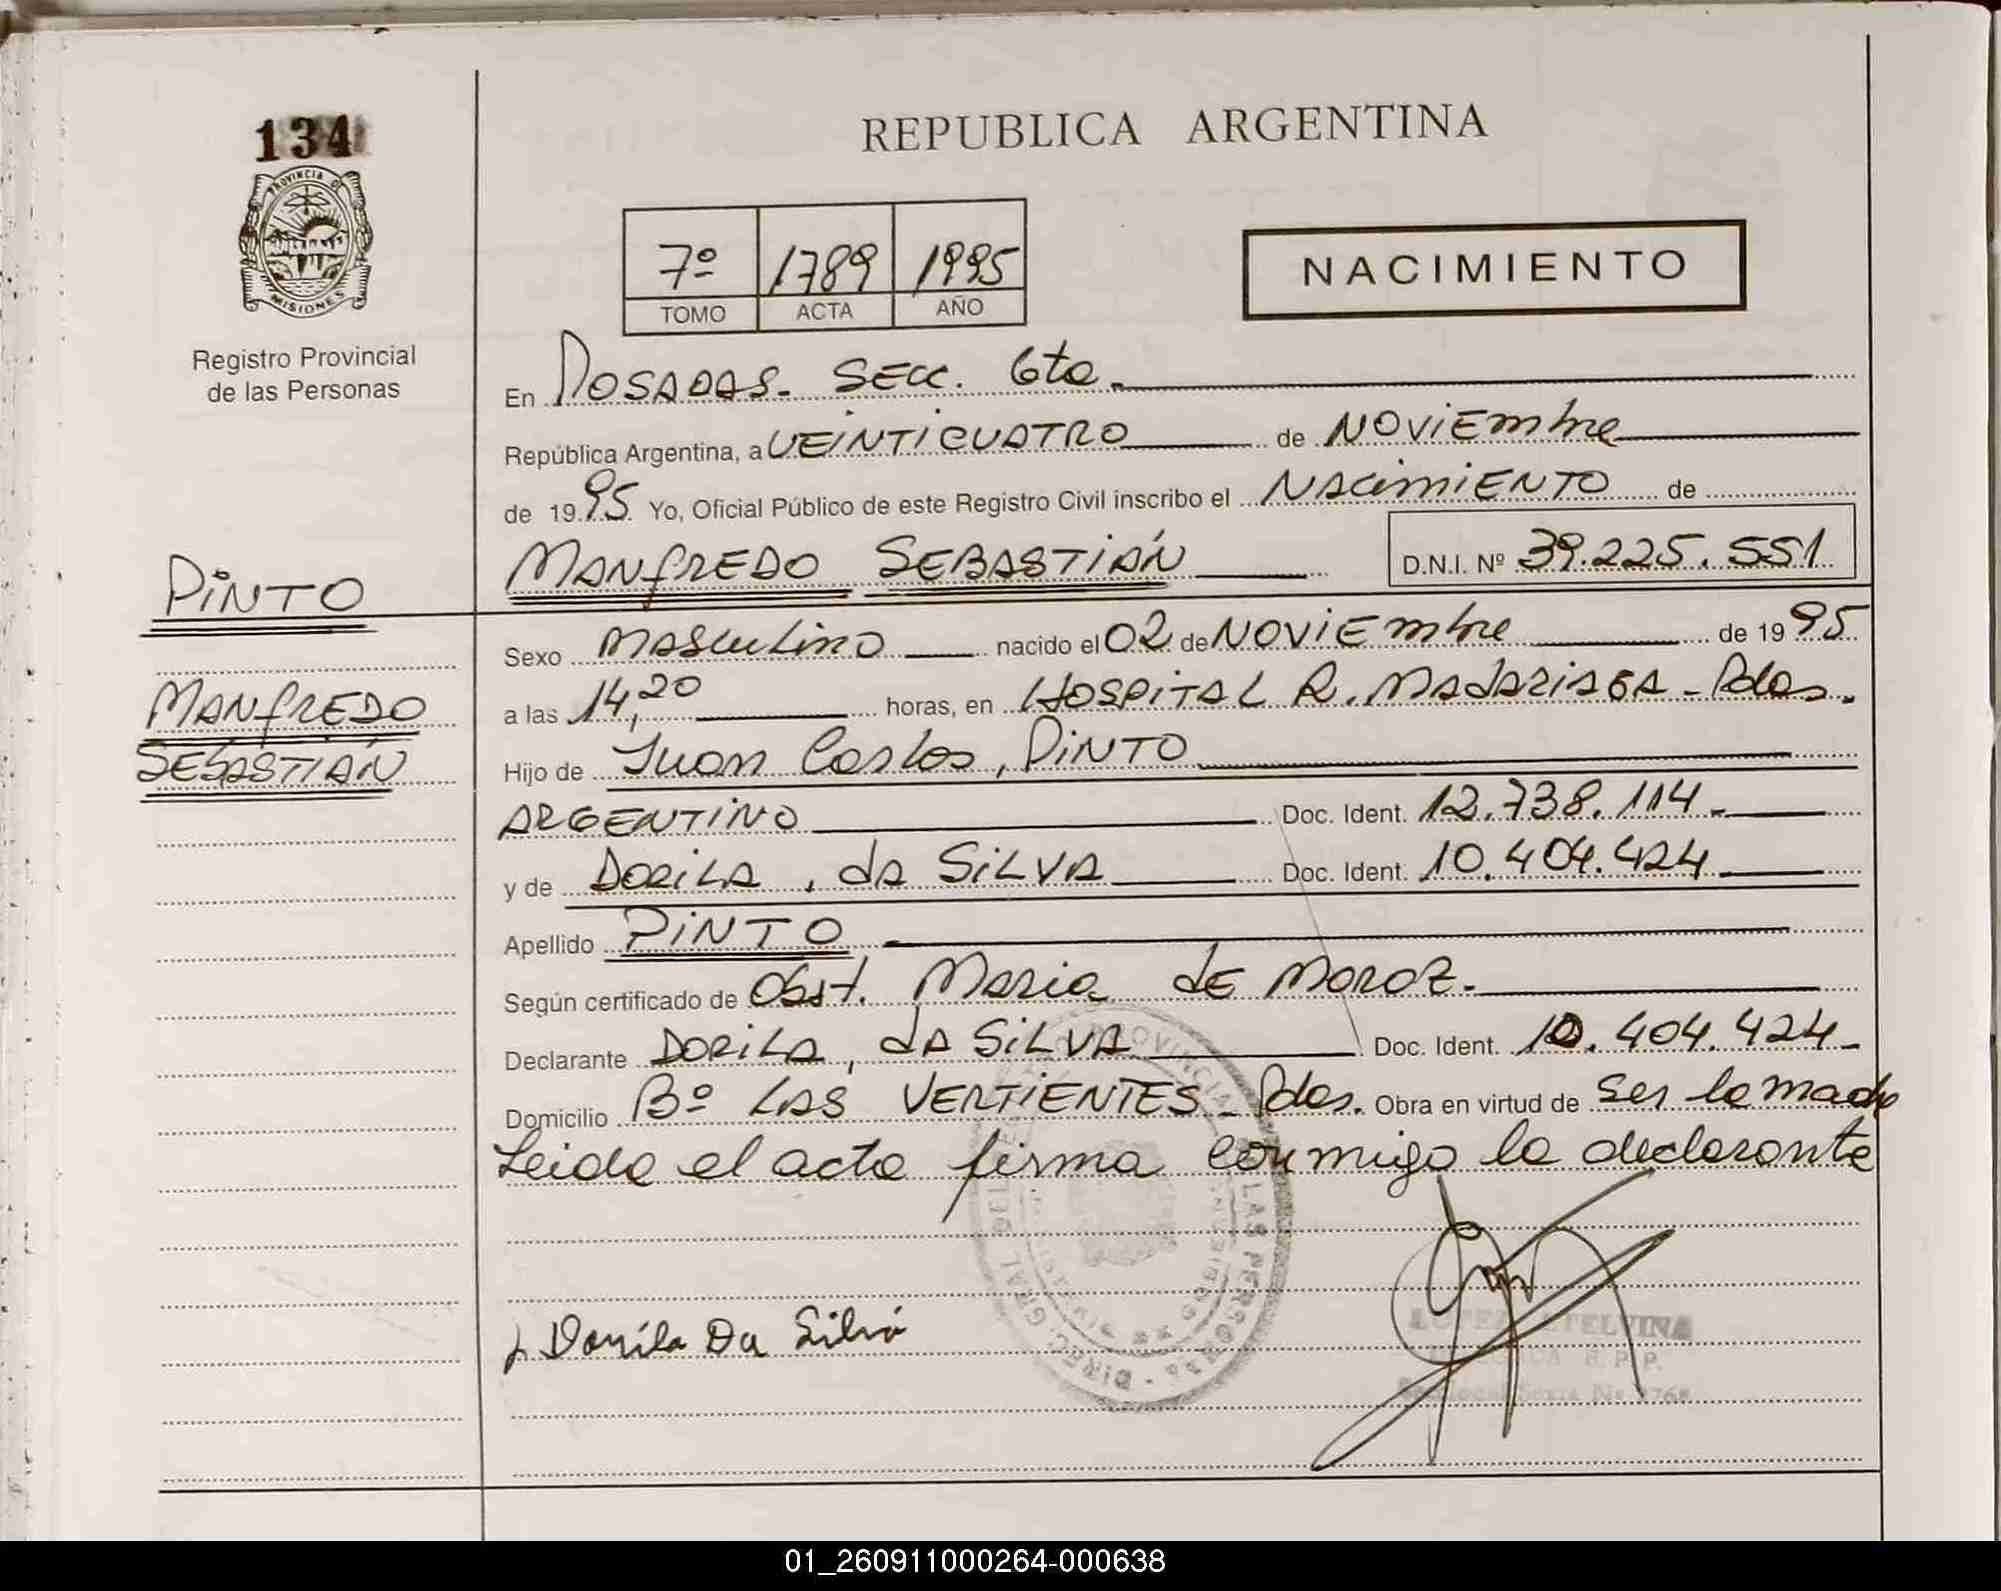 134
PROVINCIA DE
MISIONES
Registro Provincial
de las Personas
PINTO
MANFREDO
SEBASTIÁN
REPUBLICA ARGENTINA
7º 1789 1995
TOMO ACTA AÑO
NACIMIENTO
En POSADAS. SECC. 6ta.
República Argentina, a VEINTICUATRO de NOVIEmbre
de 1995 Yo, Oficial Público de este Registro Civil inscribo el NACimiENTO de
MANfREDO SEBASTIÁN D.N.I. Nº 39.225.551
Sexo masculino nacido el 02 de NOVIEmbre de 1995
a las 14,20 horas, en HOSPITAL R. MADARIAGA - Pdas.
Hijo de Juan Carlos, PINTO
ARGENTINO Doc. Ident. 12.738.114.-
y de DORILA, da SILVA Doc. Ident. 10.404.424
Apellido PINTO
Según certificado de Obst. Maria de MOROZ.
Declarante DORILA, da SILVA Doc. Ident. 10.404.424-
Domicilio Bº LAS VERTIENTES - Pdas. Obra en virtud de ser la madre
Leida el acta firma conmigo la declarante
Dorila Da Silva
01_260911000264-000638